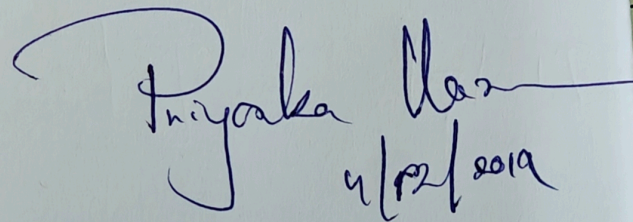 Priyanka
4/12/2019